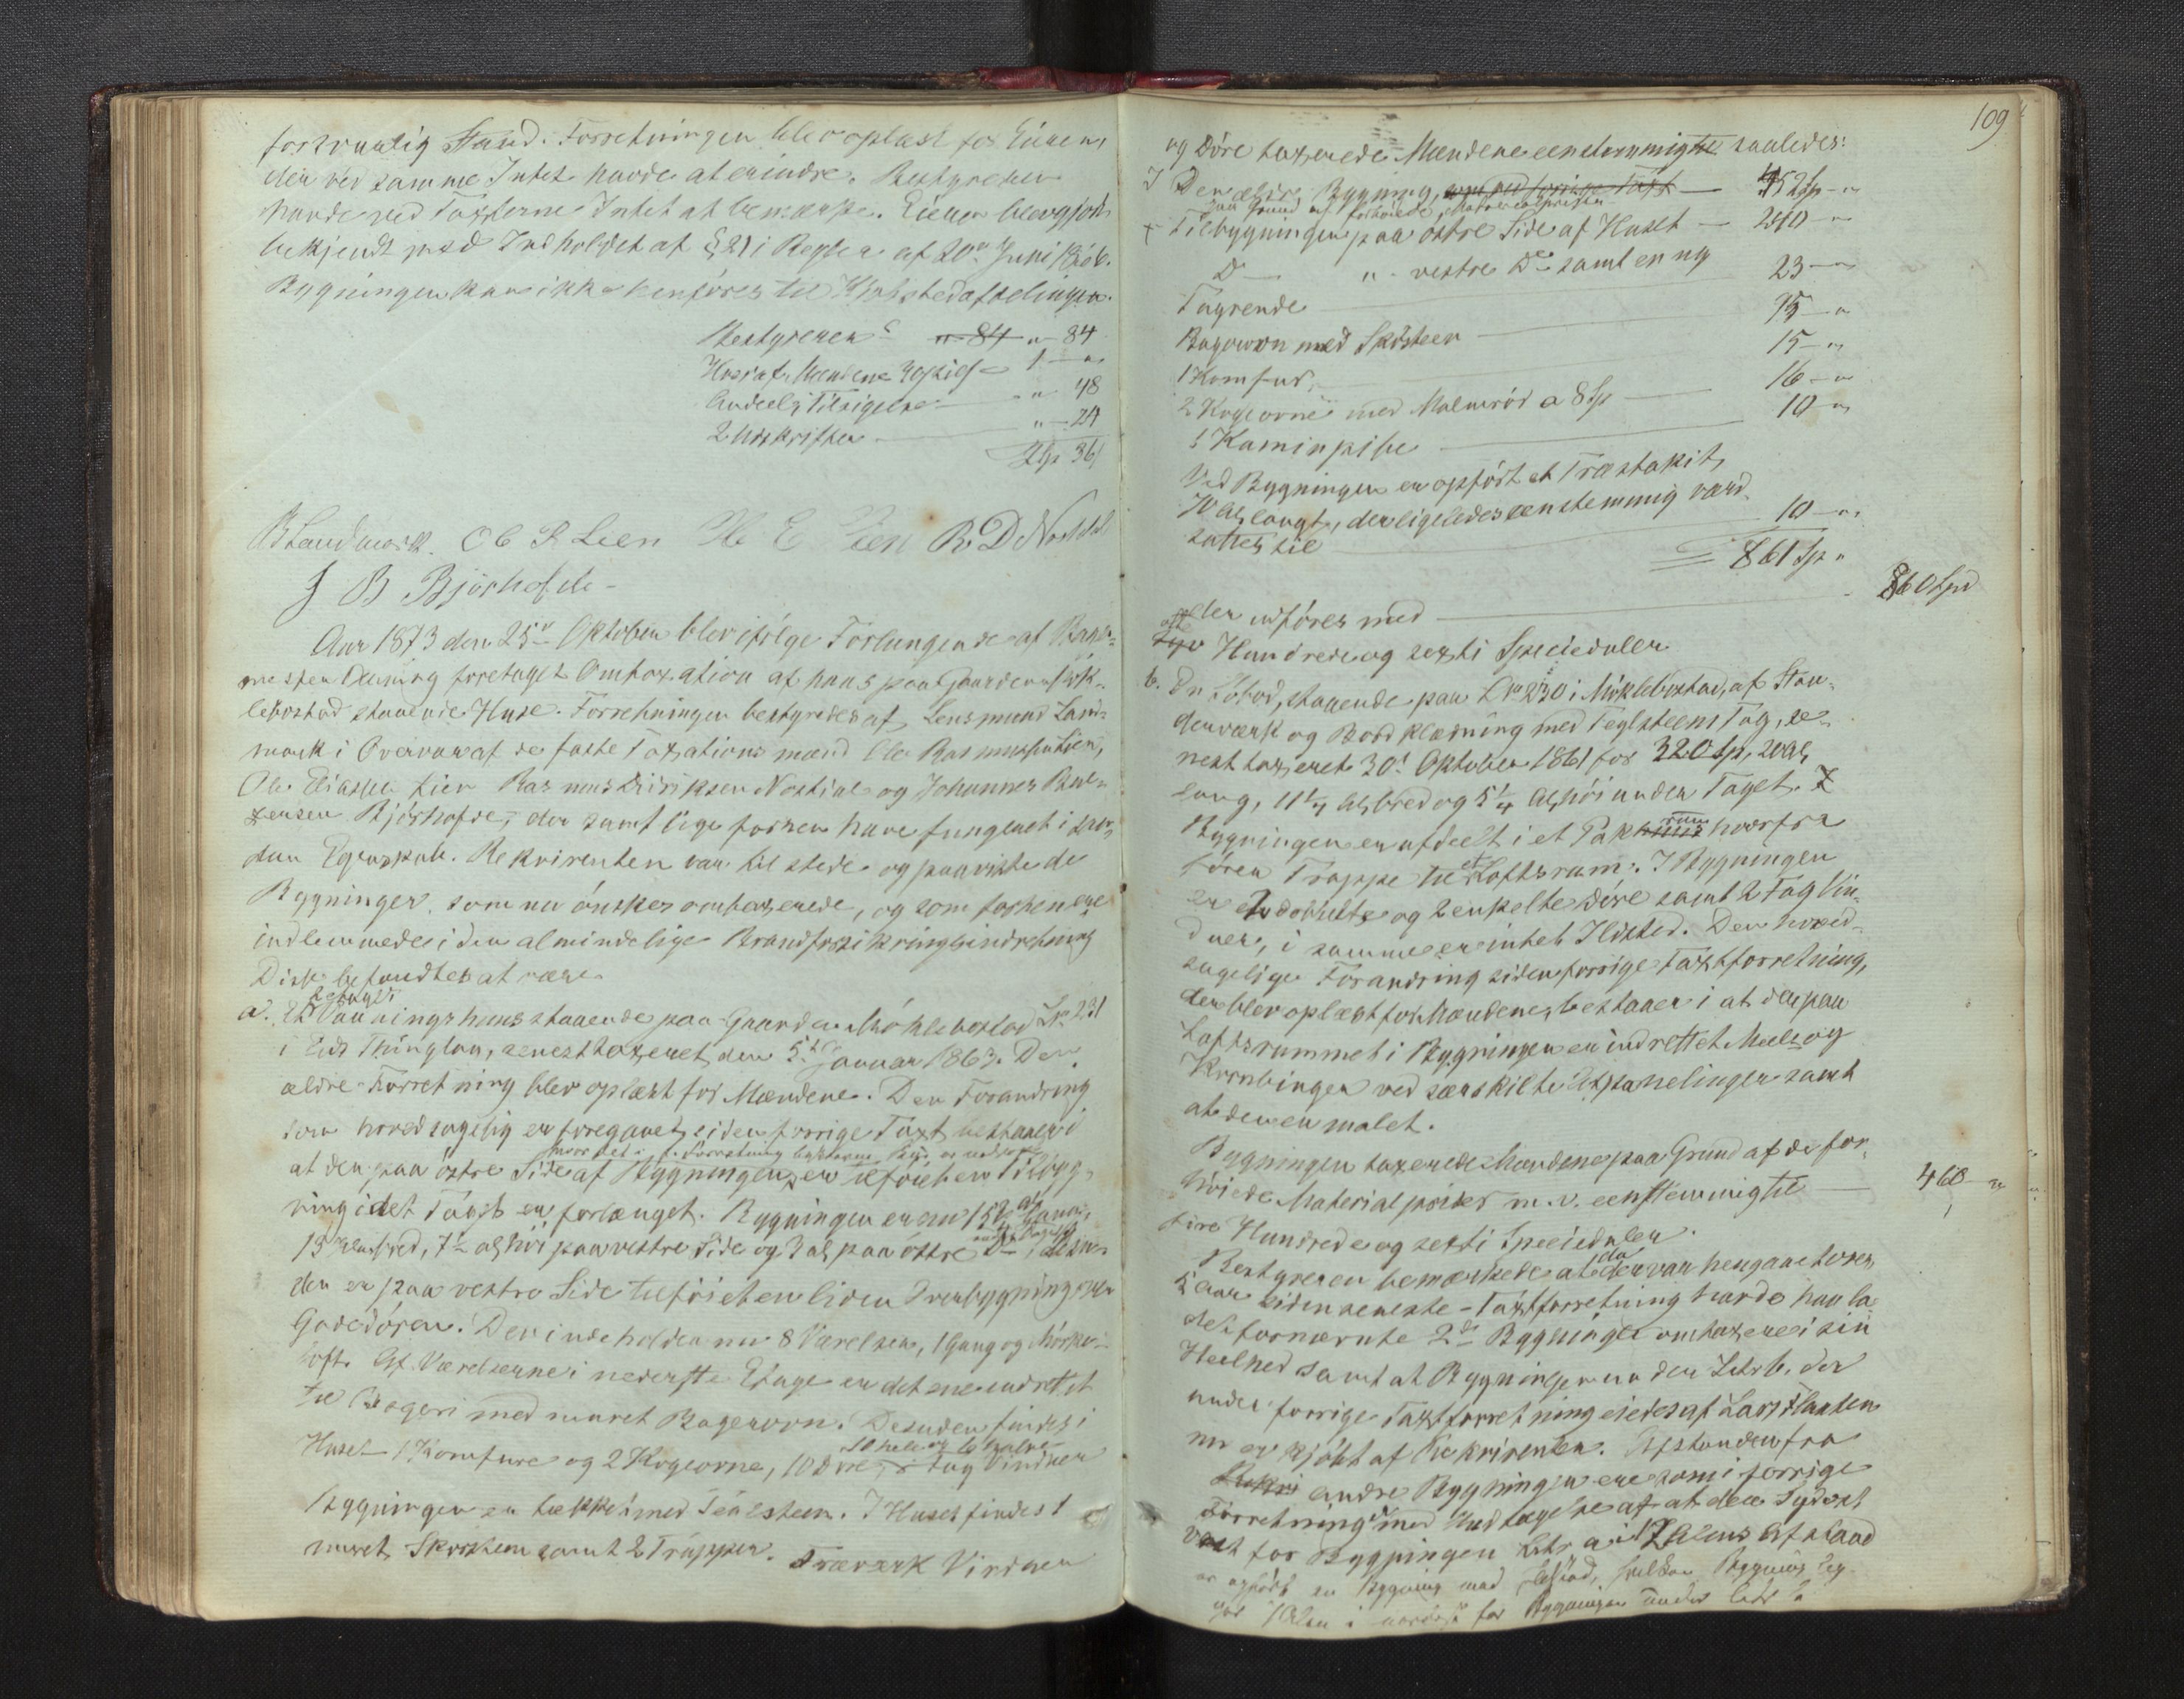 forsvarlig Stand. Forretningen blev oplæst for Eieren,
der ved samme Intet havde at erindre. Bestyreren
havde ved Taxterne Intet at bemærke. Eieren blev gjort
bekjendt med Indholdet af § 21 i Regler af 20de Juni 18
Bygningen kan ikke henføres til afdelingen.
Bestyreren " 84 " 84
Heraf Mændene 1 "
Andeel i Tilsigelse " 48
2 Udskrifter " 24
2 Sp 36
Landmark. Ole R Lien Ole E Lien R D Nostdal
J B Bjørhofde
Aar 1873 den 25de Oktober blev ifølge Forlangende af
mester foretaget Omtaxation af hans paa Gaarden Mök-
lebostad staaende Huse. Forretningen bestyredes af Lensmand Land-
mark i Overvær af de faste Taxationsmænd Ole Rasmussen Lien,
Ole Eliassen Lien Rasmus Nostdal og Johannes
Bjørhofde, der samtlige forhen have fungeret i saa-
dan Egenskab. Rekvirenten var til stede og paaviste de
Bygninger som nu ønskes omtaxerede, og som forhen ere
indlemmede i den almindelige Brandforsikringsindretning
Disse befandtes at være
a. Et 2 etages Vaaningshuus staaende paa Gaarden Möklebostad Lno 231
i Eids Thinglag, senest taxeret den 5te Januar 1863. Den
ældre Forretning blev oplæst for Mændene. Den Forandring
som hovedsagelig er foregaaet siden forrige Taxt bestaaer i
at den paa østre Side af Bygningen
ning i det Taget er forlænget. Bygningen er nu
13 Alen bred, 7 1/2 al høi paa vestre Side og 3 al paa østre Do
den er paa vestre Side tilføiet en liden Overbygning over
Gadedøren. Den indeholder nu 8 Værelser, 1 Gang og Mørke-
loft. Af Værelserne i nederste Etage er det ene indrettet
til Bageri med muret Bagerovn. Desuden findes i
Huset 1 Komfure og 2 Kogeovne, 10 Døre, 10 hele og 6 halve Fag Vinduer
Bygningen er tækket med Teglsteen. I Huset findes 1
muret Skorsteen samt 2 Trapper. Træværk Vinduer
109
og Døre taxerede Mændene eenstemmigte saaledes:
Den ældre Bygning, som ved forrige Taxt 452 Sp "
paa Grund af forhøiede Materialpriser
Tilbygningen paa østre Side af Huset "
Do " vestre Do samt en ny
Tagrende 23 "
Bagerovn med Skorsteen "
1 Komfur 15 "
2 Kogeovne med Malmrør a 8 Sp 16 "
1 Kaminpibe 10 "
Ved Bygningen er opført et Træstakit,
Al. langt, der ligeledes eenstemmig værd
sattes til 10 "
861 Sp "
der udføres med 860 Spd
otte Hundrede og sexti Speciedaler
b. En Söbod, staaende paa Lno 230 i Möklebostad, af Stan-
derværk og Bordklædning med Teglsteens Tag, se-
nest taxeret 30te Oktober 1861 for 320 Sp, 20 al,
lang, 11 1/4 al, bred og 5 1/4 al, høi under Taget.
Bygningen er afdeelt i et Pakrum hvorfra
fører Trappe til et Loftsrum. I Bygningen
er dobbelte og 2 enkelte Døre samt 2 Fag Vin-
duer, i samme er intet Ildsted. Den hoved-
sagelige Forandring siden forrige Taxtforretning,
der blev oplæst for Mændene, bestaaer i at der paa
Loftsrummet i Bygningen er indrettet Meel og
Kornbinger ved særskilte Afpanelinger samt
at den er malet.
Bygningen taxerede Mændene paa Grund af de for-
høiede Materialpriser m. v. eenstemmig til 460 "
fire Hundrede og sexti Speciedaler.
Bestyreren bemærkede at da der var hengaaet over
5 Aar siden seneste Taxtforretning havde han la-
det fornævnte 2de Bygninger omtaxere i sin
Heelhed samt at Bygningen under Litr b. der
under forrige Taxtforretning eiedes af Lars
nu er kjøbt af Rekvirenten. Afstanden fra
andre Bygninger ere som i forrige
Forretning med Undtagelse af at der Sydost
Vest for Bygningen Litr a i 17 Alens Afstand
er opført en Bygning med Ildsted, hvilken Bygning lig-
ger Alen i nordost for Bygningen under Litr b